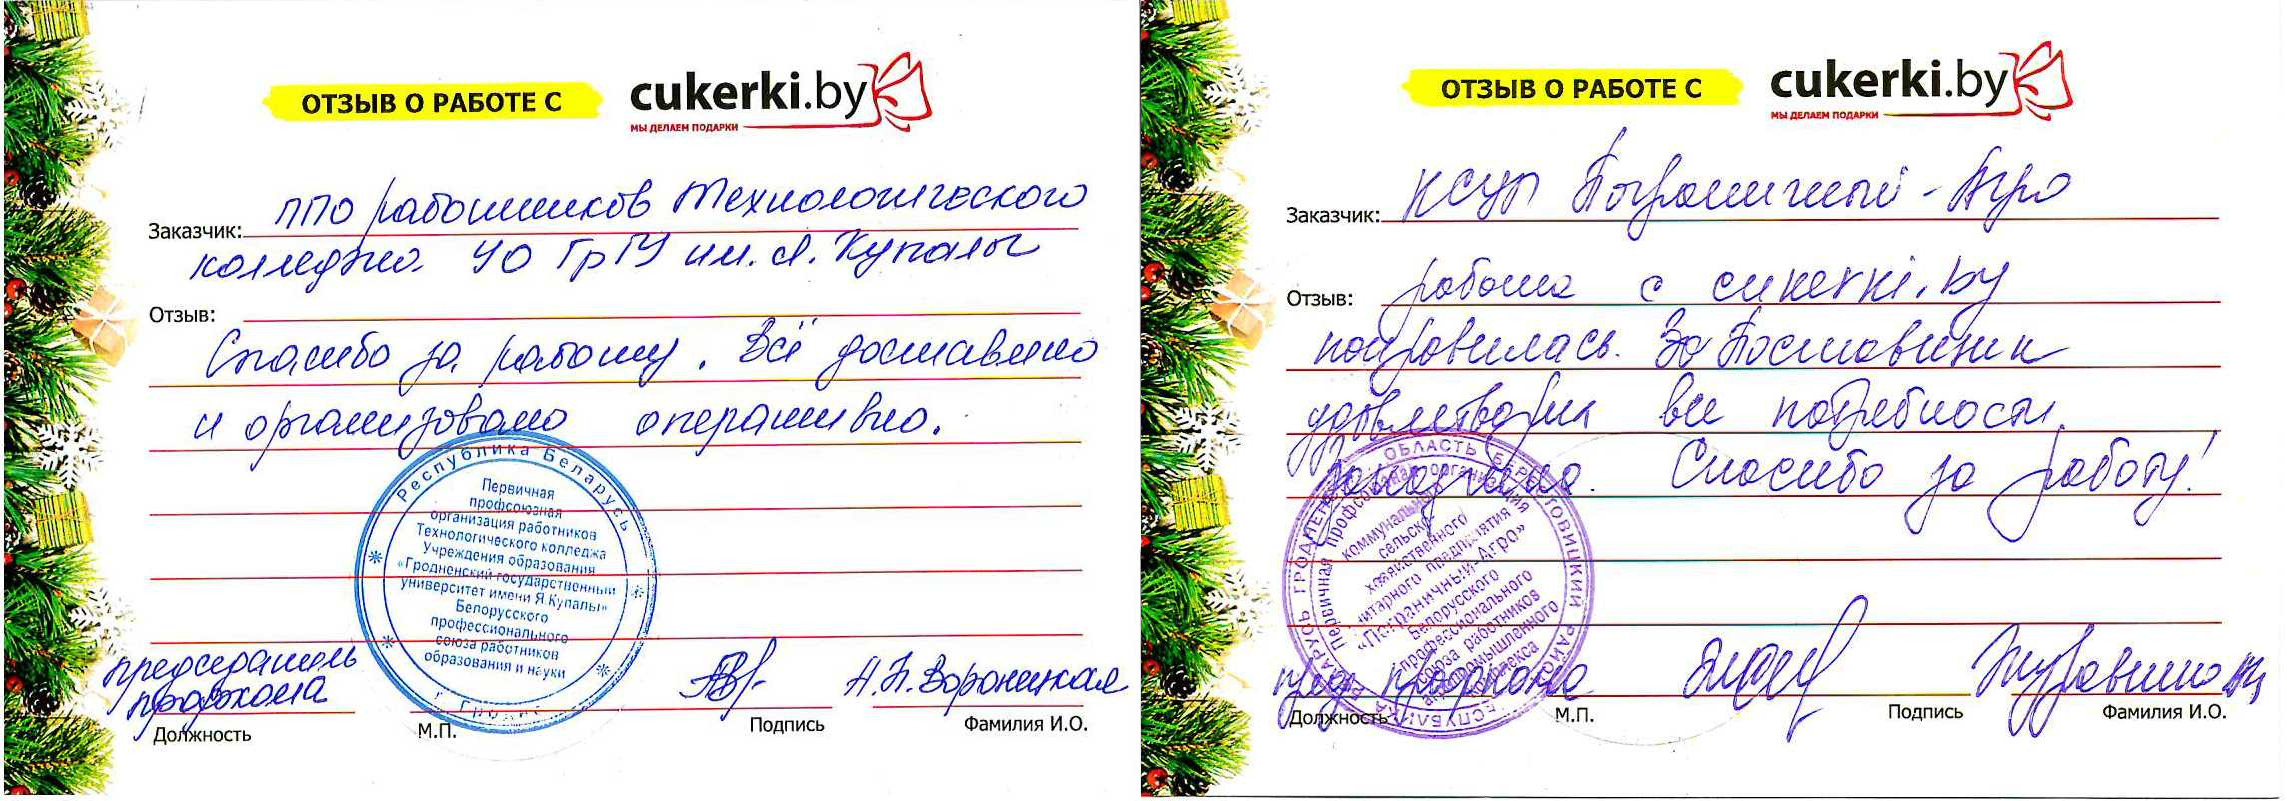 ОТЗЫВ О РАБОТЕ С
cukerki.by
МЫ ДЕЛАЕМ ПОДАРКИ
Заказчик: ППО работников Технологического
колледжа УО ГрГУ им. Я. Купалы
Отзыв:
Спасибо за работу. Всё доставлено
и организовано оперативно.
Республика Беларусь
Первичная
профсоюзная
организация работников
Технологического колледжа
Учреждения образования
«Гродненский государственный
университет имени Я.Купалы»
Белорусского
профессионального
союза работников
образования и науки
г. Гродно
председатель
профкома
А.П. Вороницкая
Должность
М.П.
Подпись
Фамилия И.О.
ОТЗЫВ О РАБОТЕ С
cukerki.by
МЫ ДЕЛАЕМ ПОДАРКИ
Заказчик: КСУП Пограничный-Агро
Отзыв: работа с cukerki.by
понравилась.
все потребности
Спасибо за работу!
Первичная профсоюзная организация
коммунального
сельско-
хозяйственного
унитарного предприятия
«Пограничный-Агро»
Белорусского
профессионального
союза работников
агропромышленного
комплекса
пред. профкома
Должность
М.П.
Подпись
Фамилия И.О.